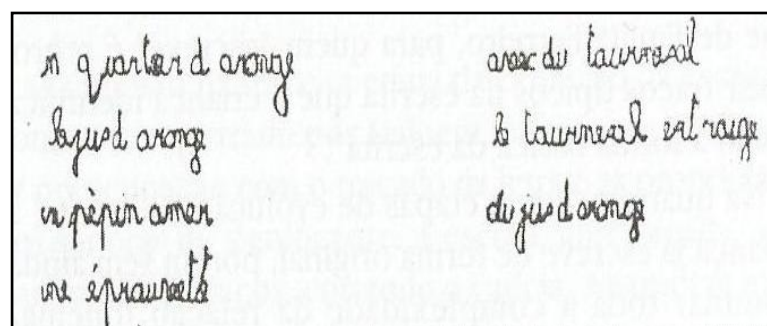 n quartier d aronge
le jus d aronge
un pèpin amer
une éprauvette
avec du taurnesal
le taurnesal est rauge
du jus d aronge